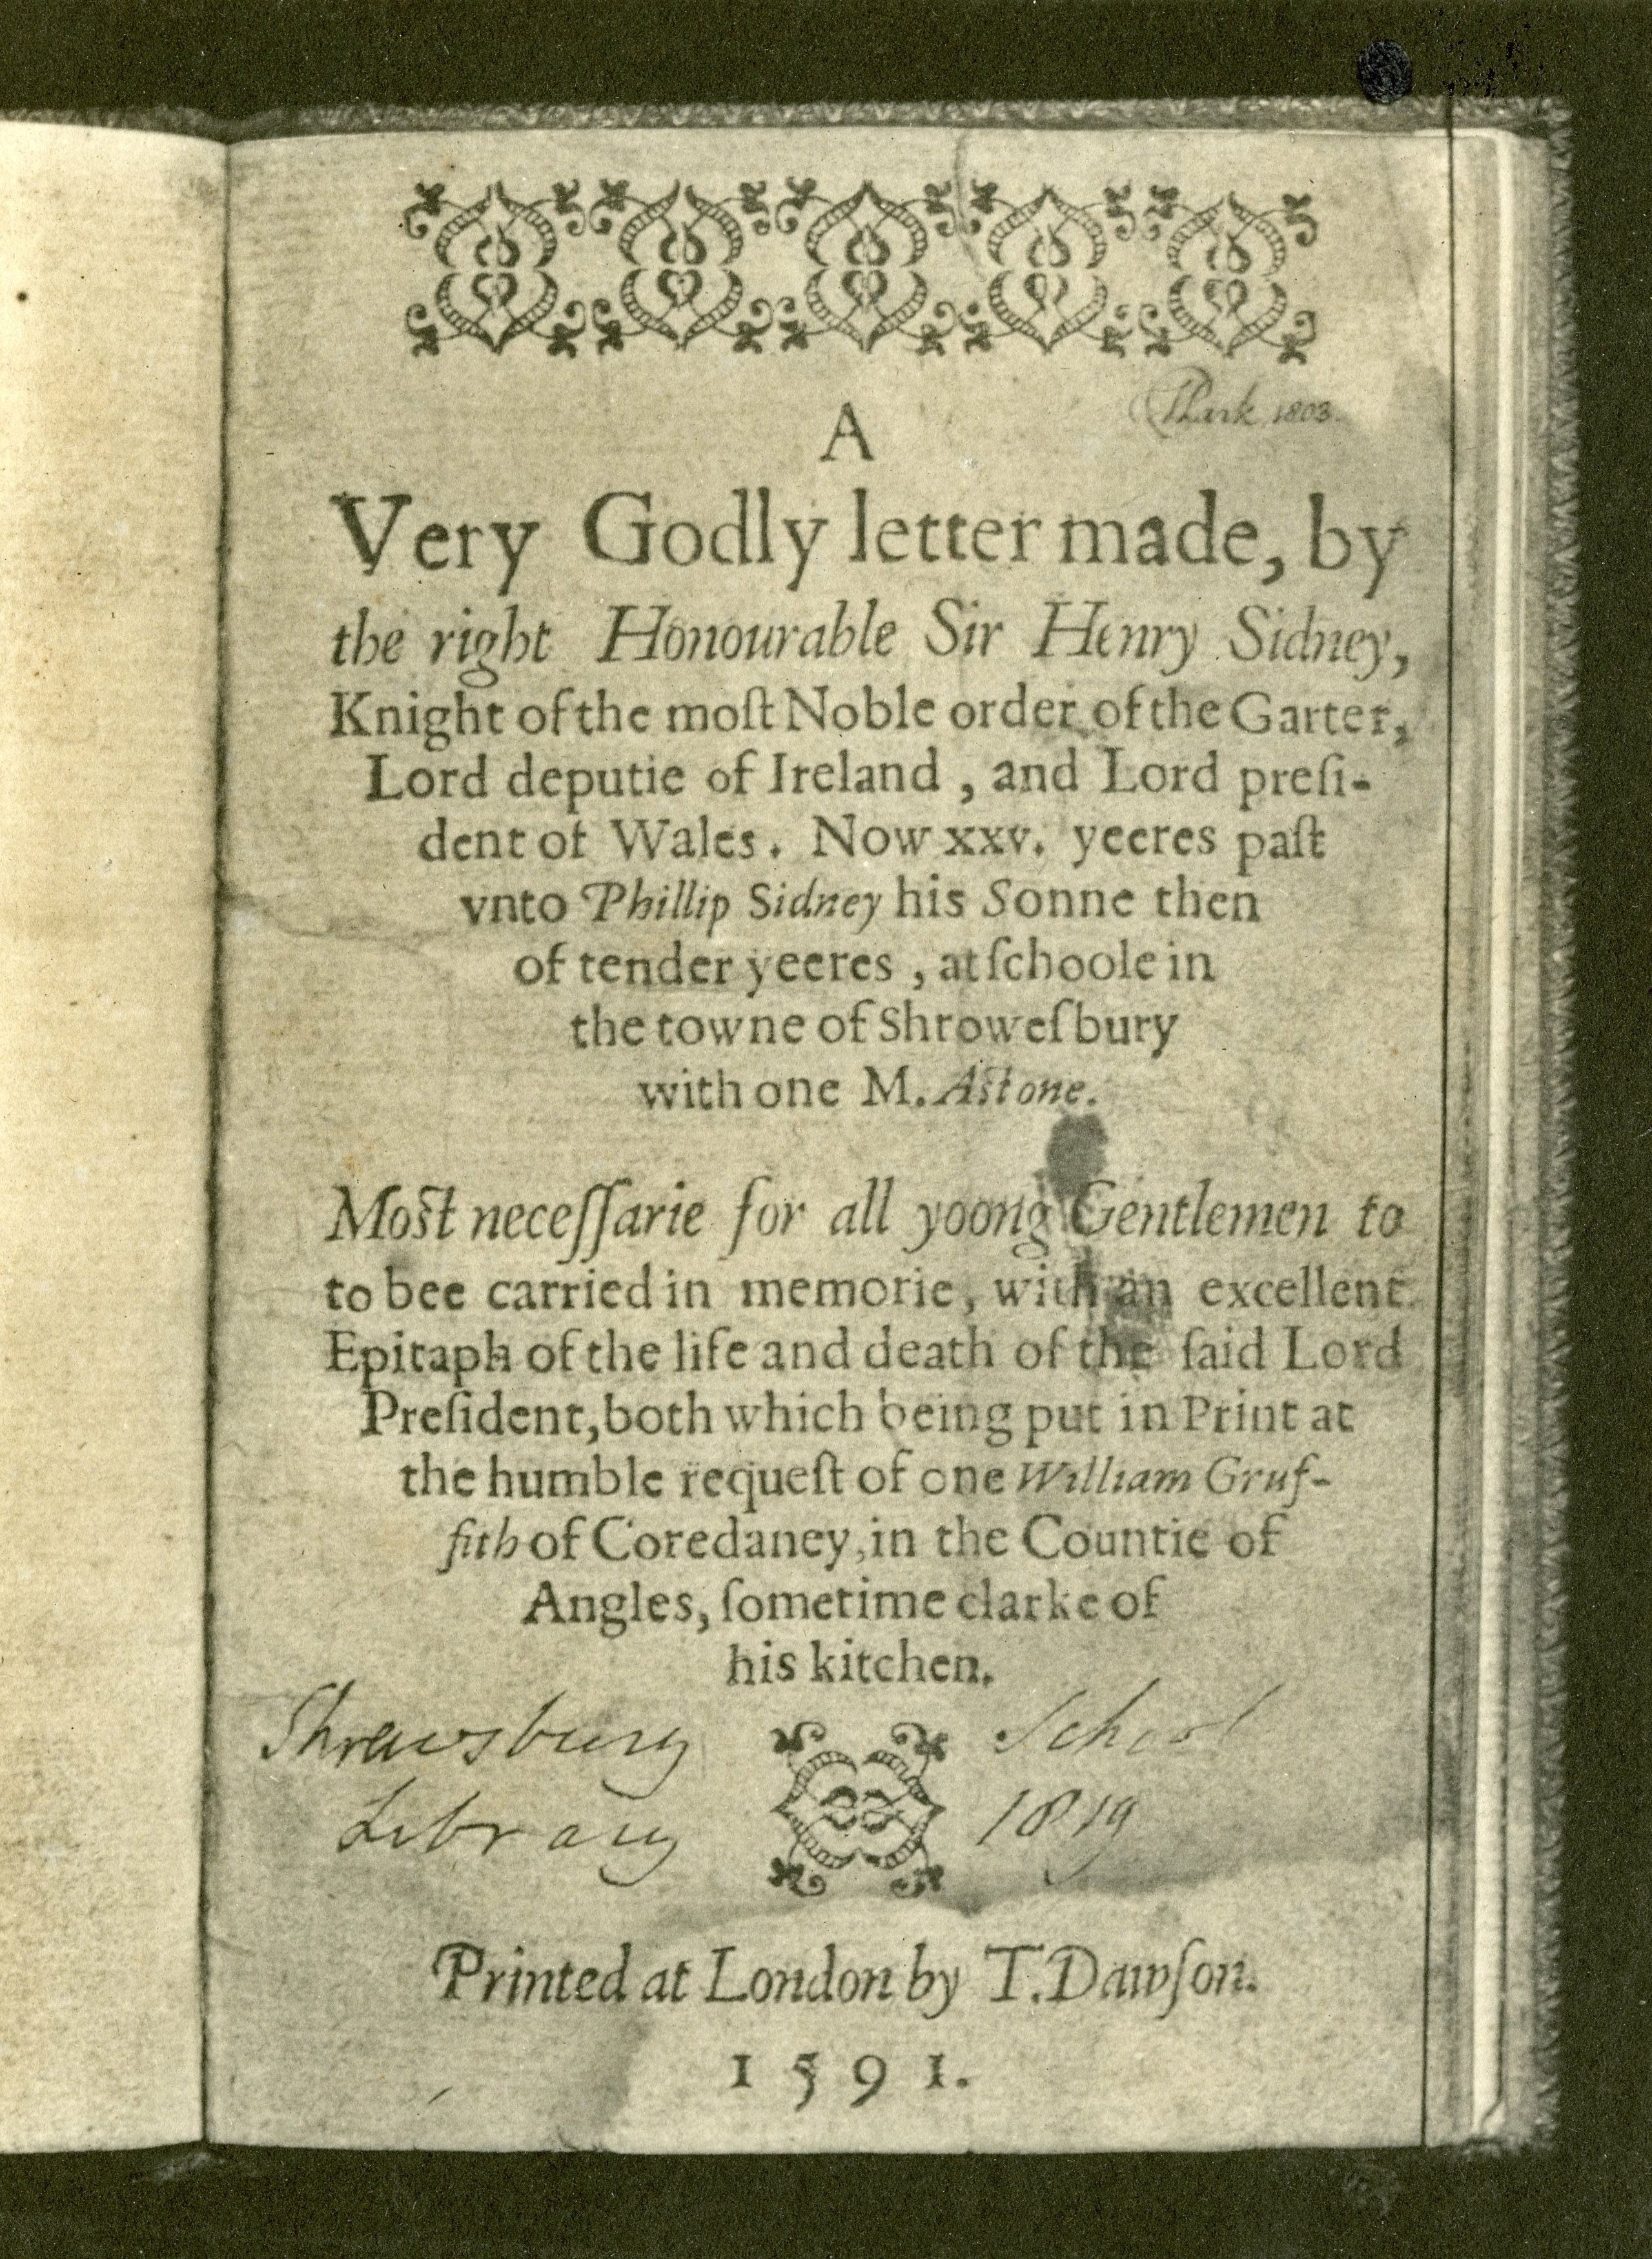 TPark 1803.
A
Very Godly letter made, by
the right Honourable Sir Henry Sidney,
Knight of the moſt Noble order of the Garter,
Lord deputie of Ireland, and Lord preſi-
dent of Wales. Now xxv. yeeres paſt
vnto Phillip Sidney his Sonne then
of tender yeeres, at ſchoole in
the towne of Shroweſbury
with one M. Aſtone.
Moſt neceſſarie for all yoong Gentlemen to
to bee carried in memorie, with an excellent
Epitaph of the life and death of the ſaid Lord
Preſident, both which being put in Print at
the humble requeſt of one William Gruf-
fith of Coredaney, in the Countie of
Angles, ſometime clarke of
his kitchen.
Shrewsbury School
Library 1819
Printed at London by T. Dawſon.
1591.